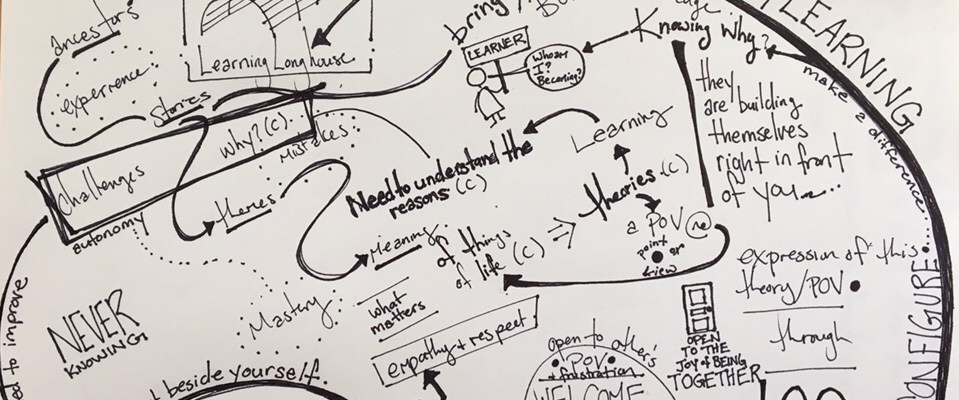 Ancestors
experience
Stories
Learning Longhouse
bring
LEARNER
Who am
I?
Becoming?
Knowing Why?
LEARNING
make a difference...
they
are building
themselves
right in front
of you....
Challenges
Why? (c).
Mistakes
autonomy
themes
Need to understand the
reasons (c)
Learning
theories (c)
a POV (re)
point of
view
Meaning
of things
of life (c)
what
matters
empathy + respect
Mastery
NEVER
KNOWING
to improve
beside yourself.
Open to others'
POV
+ frustration
WELCOME
OPEN
TO THE
JOY of BEING
TOGETHER
expression of this
theory/POV
through
CONFIGURE